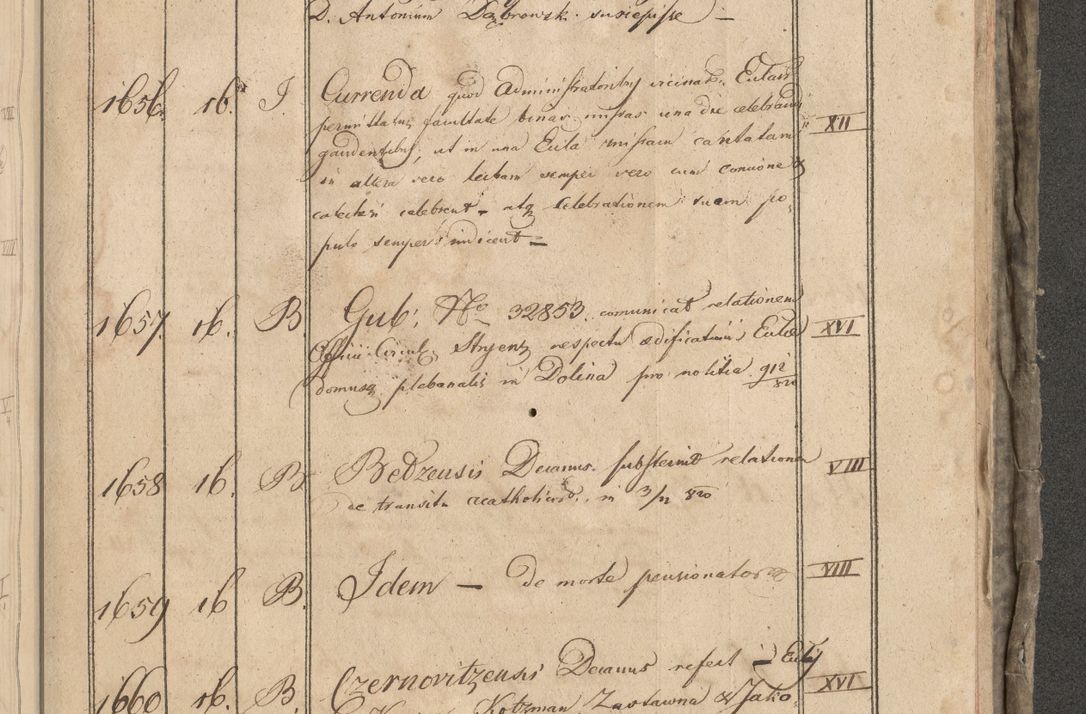 D. Antonium Dąbrowsk. suscepisse —
1656. 16. I Currenda quod Administratoribus vicinar. Eccl.
facultate binas missas una die celebrandi XII
gaudentibus, ut in una Eccla missam cantatam
in altera vero lectam semper vero cum concione &
catechesi celebrent - atq celebrationem suam po-
pulo semper indicent —
1657. 16. B Gub: No 32853. comunicat relationem
Officii Circul. Stryens respectu ædificationis Eccl XVI
domusq plebanalis in Dolina pro notitia 912/820
1658 16. B Bełzensis Decanus substernit relationem VIII
de transitu acatholicor. in 3/12 820
1659 16 B. Idem — de morte pensionator VIII
1660 16. B. Czernovitzensis Decanus refert XVI
Kotzman Zastawna & Jako-